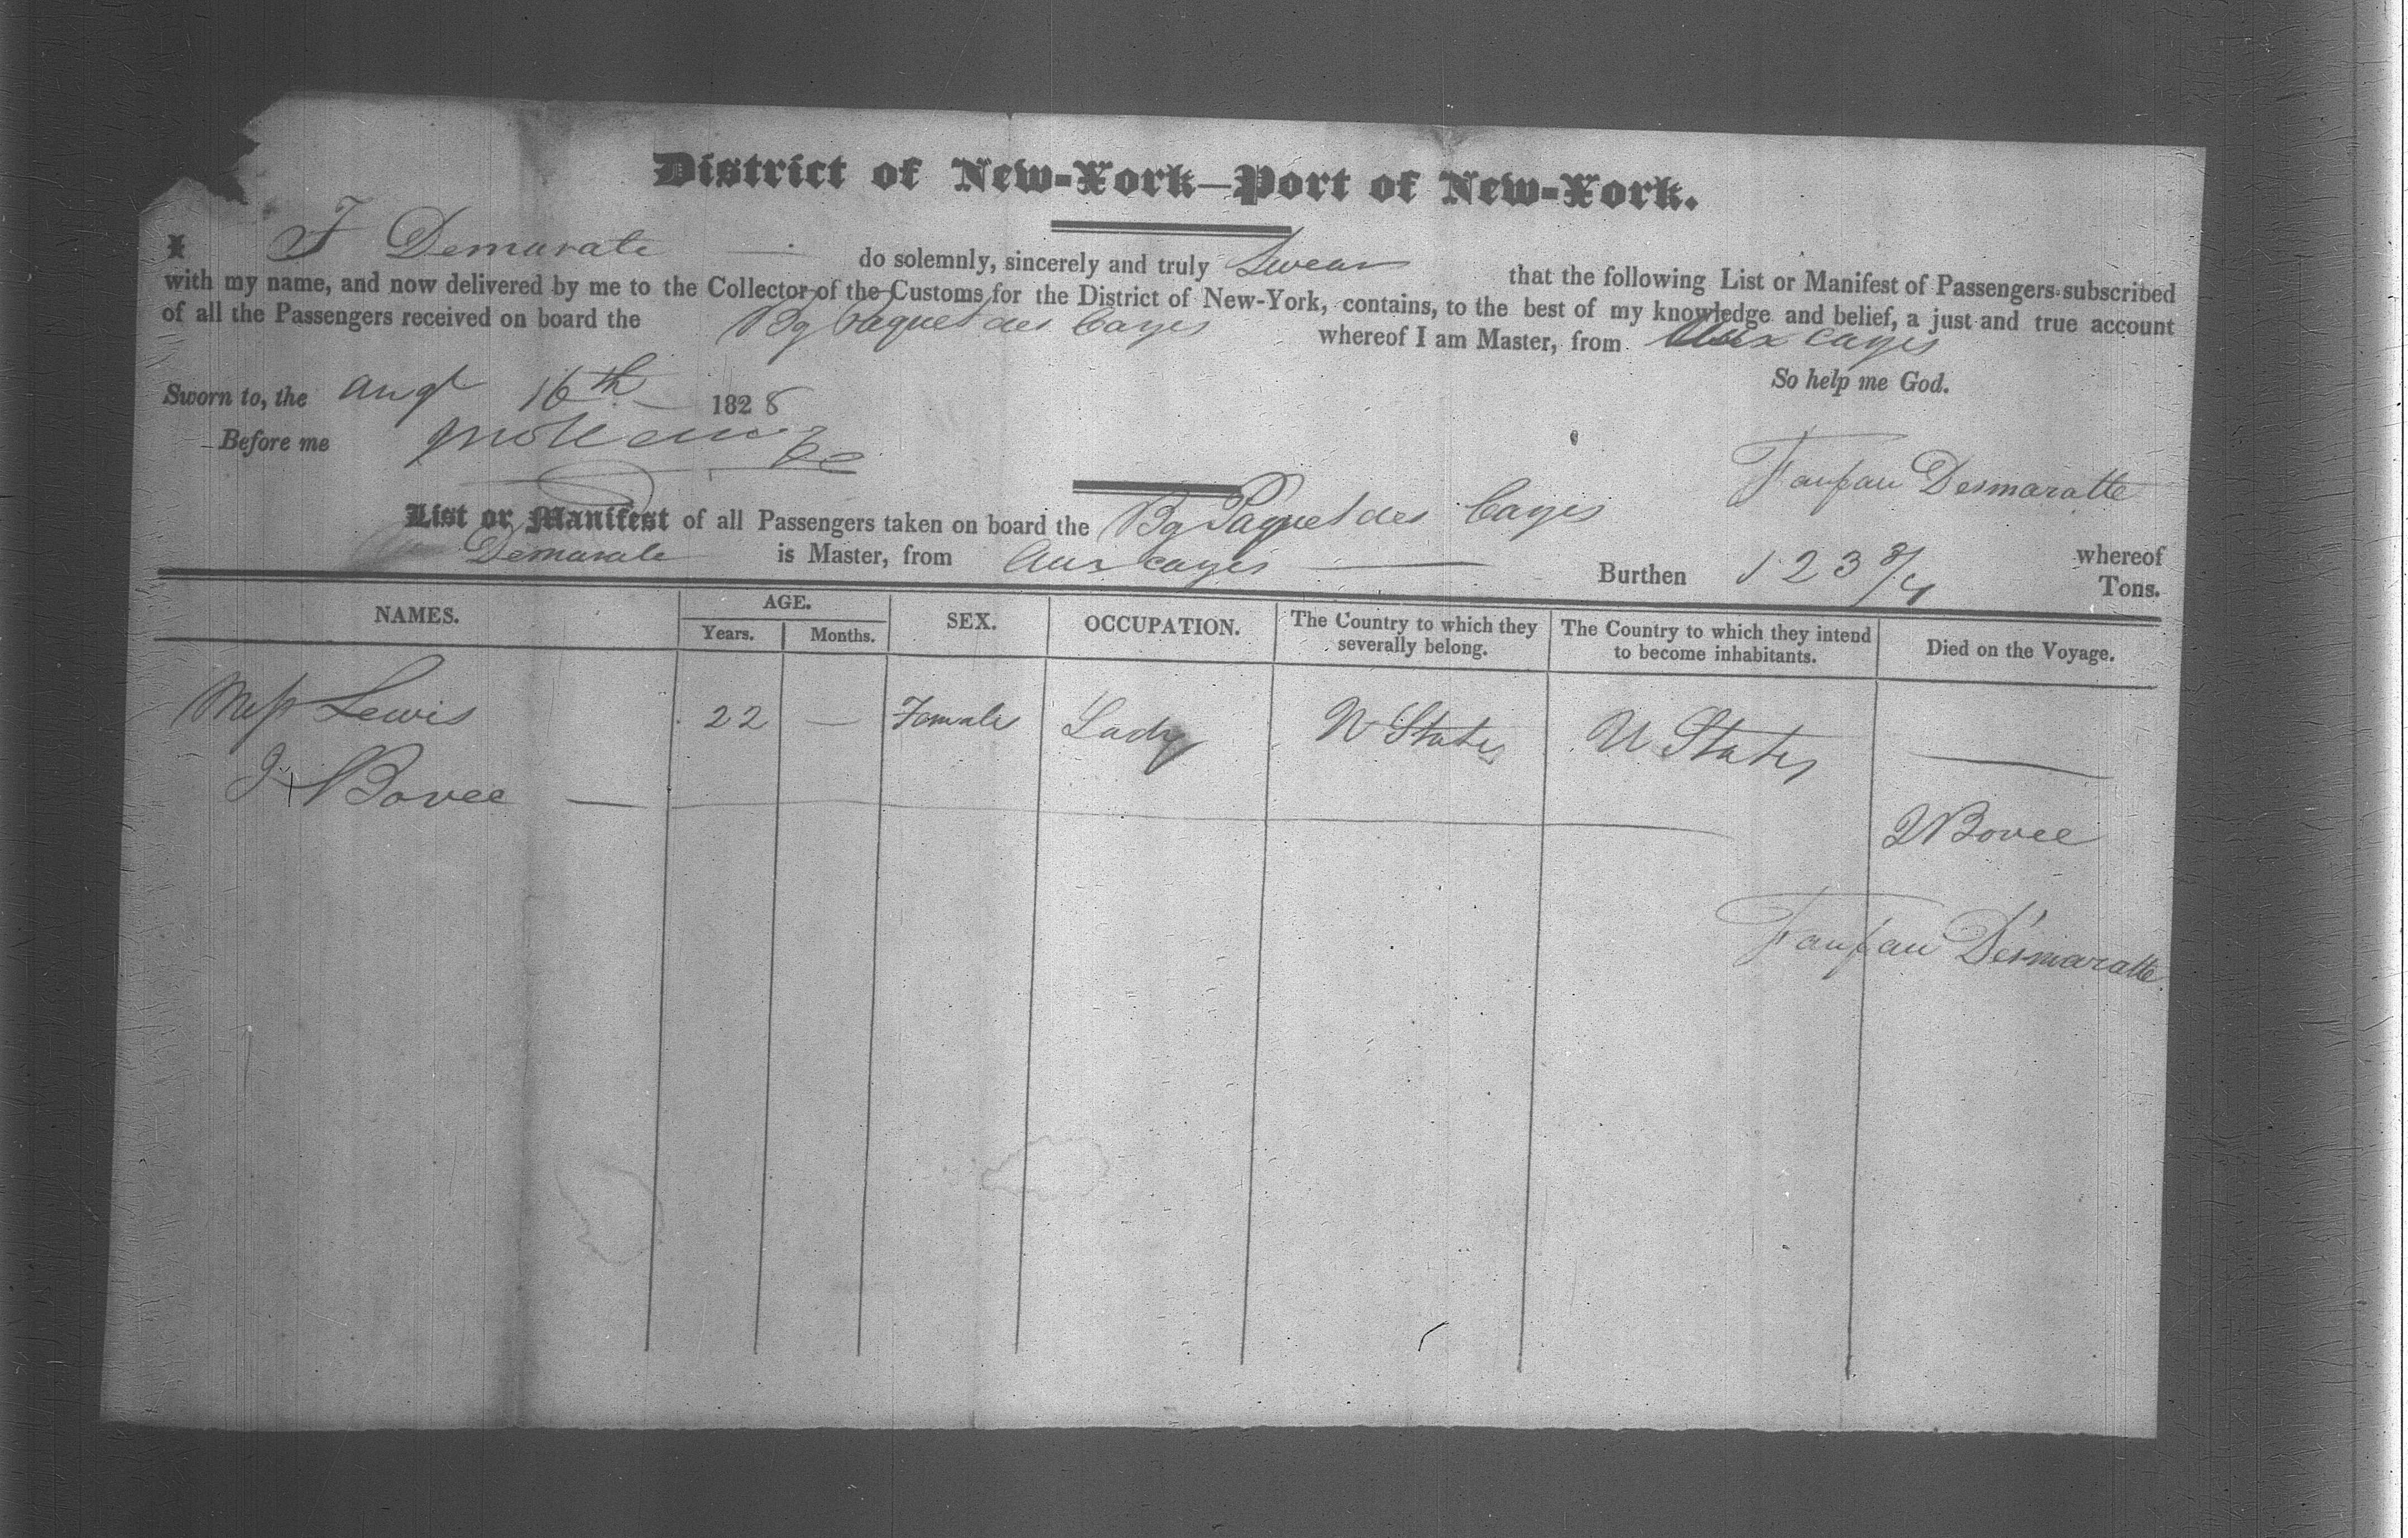 District of New-York—Port of New-York.
I F Demarate do solemnly, sincerely and truly Swear that the following List or Manifest of Passengers subscribed
with my name, and now delivered by me to the Collector of the Customs for the District of New-York, contains, to the best of my knowledge and belief, a just and true account
of all the Passengers received on board the Bg Paquet des Cayes whereof I am Master, from Aux Cayes
So help me God.
Sworn to, the Augt 16th 1828
Before me
Fanfan Desmaratte
List or Manifest of all Passengers taken on board the Bg Paquet des Cayes whereof
Demarate is Master, from Aux cayes — Burthen 123 3/4 Tons.
NAMES. AGE. Years. Months. SEX. OCCUPATION. The Country to which they severally belong. The Country to which they intend to become inhabitants. Died on the Voyage.
Miss Lewis 22 — Female Lady U States U States —
J Bovee — J Bovee
Fanfan Desmaratte